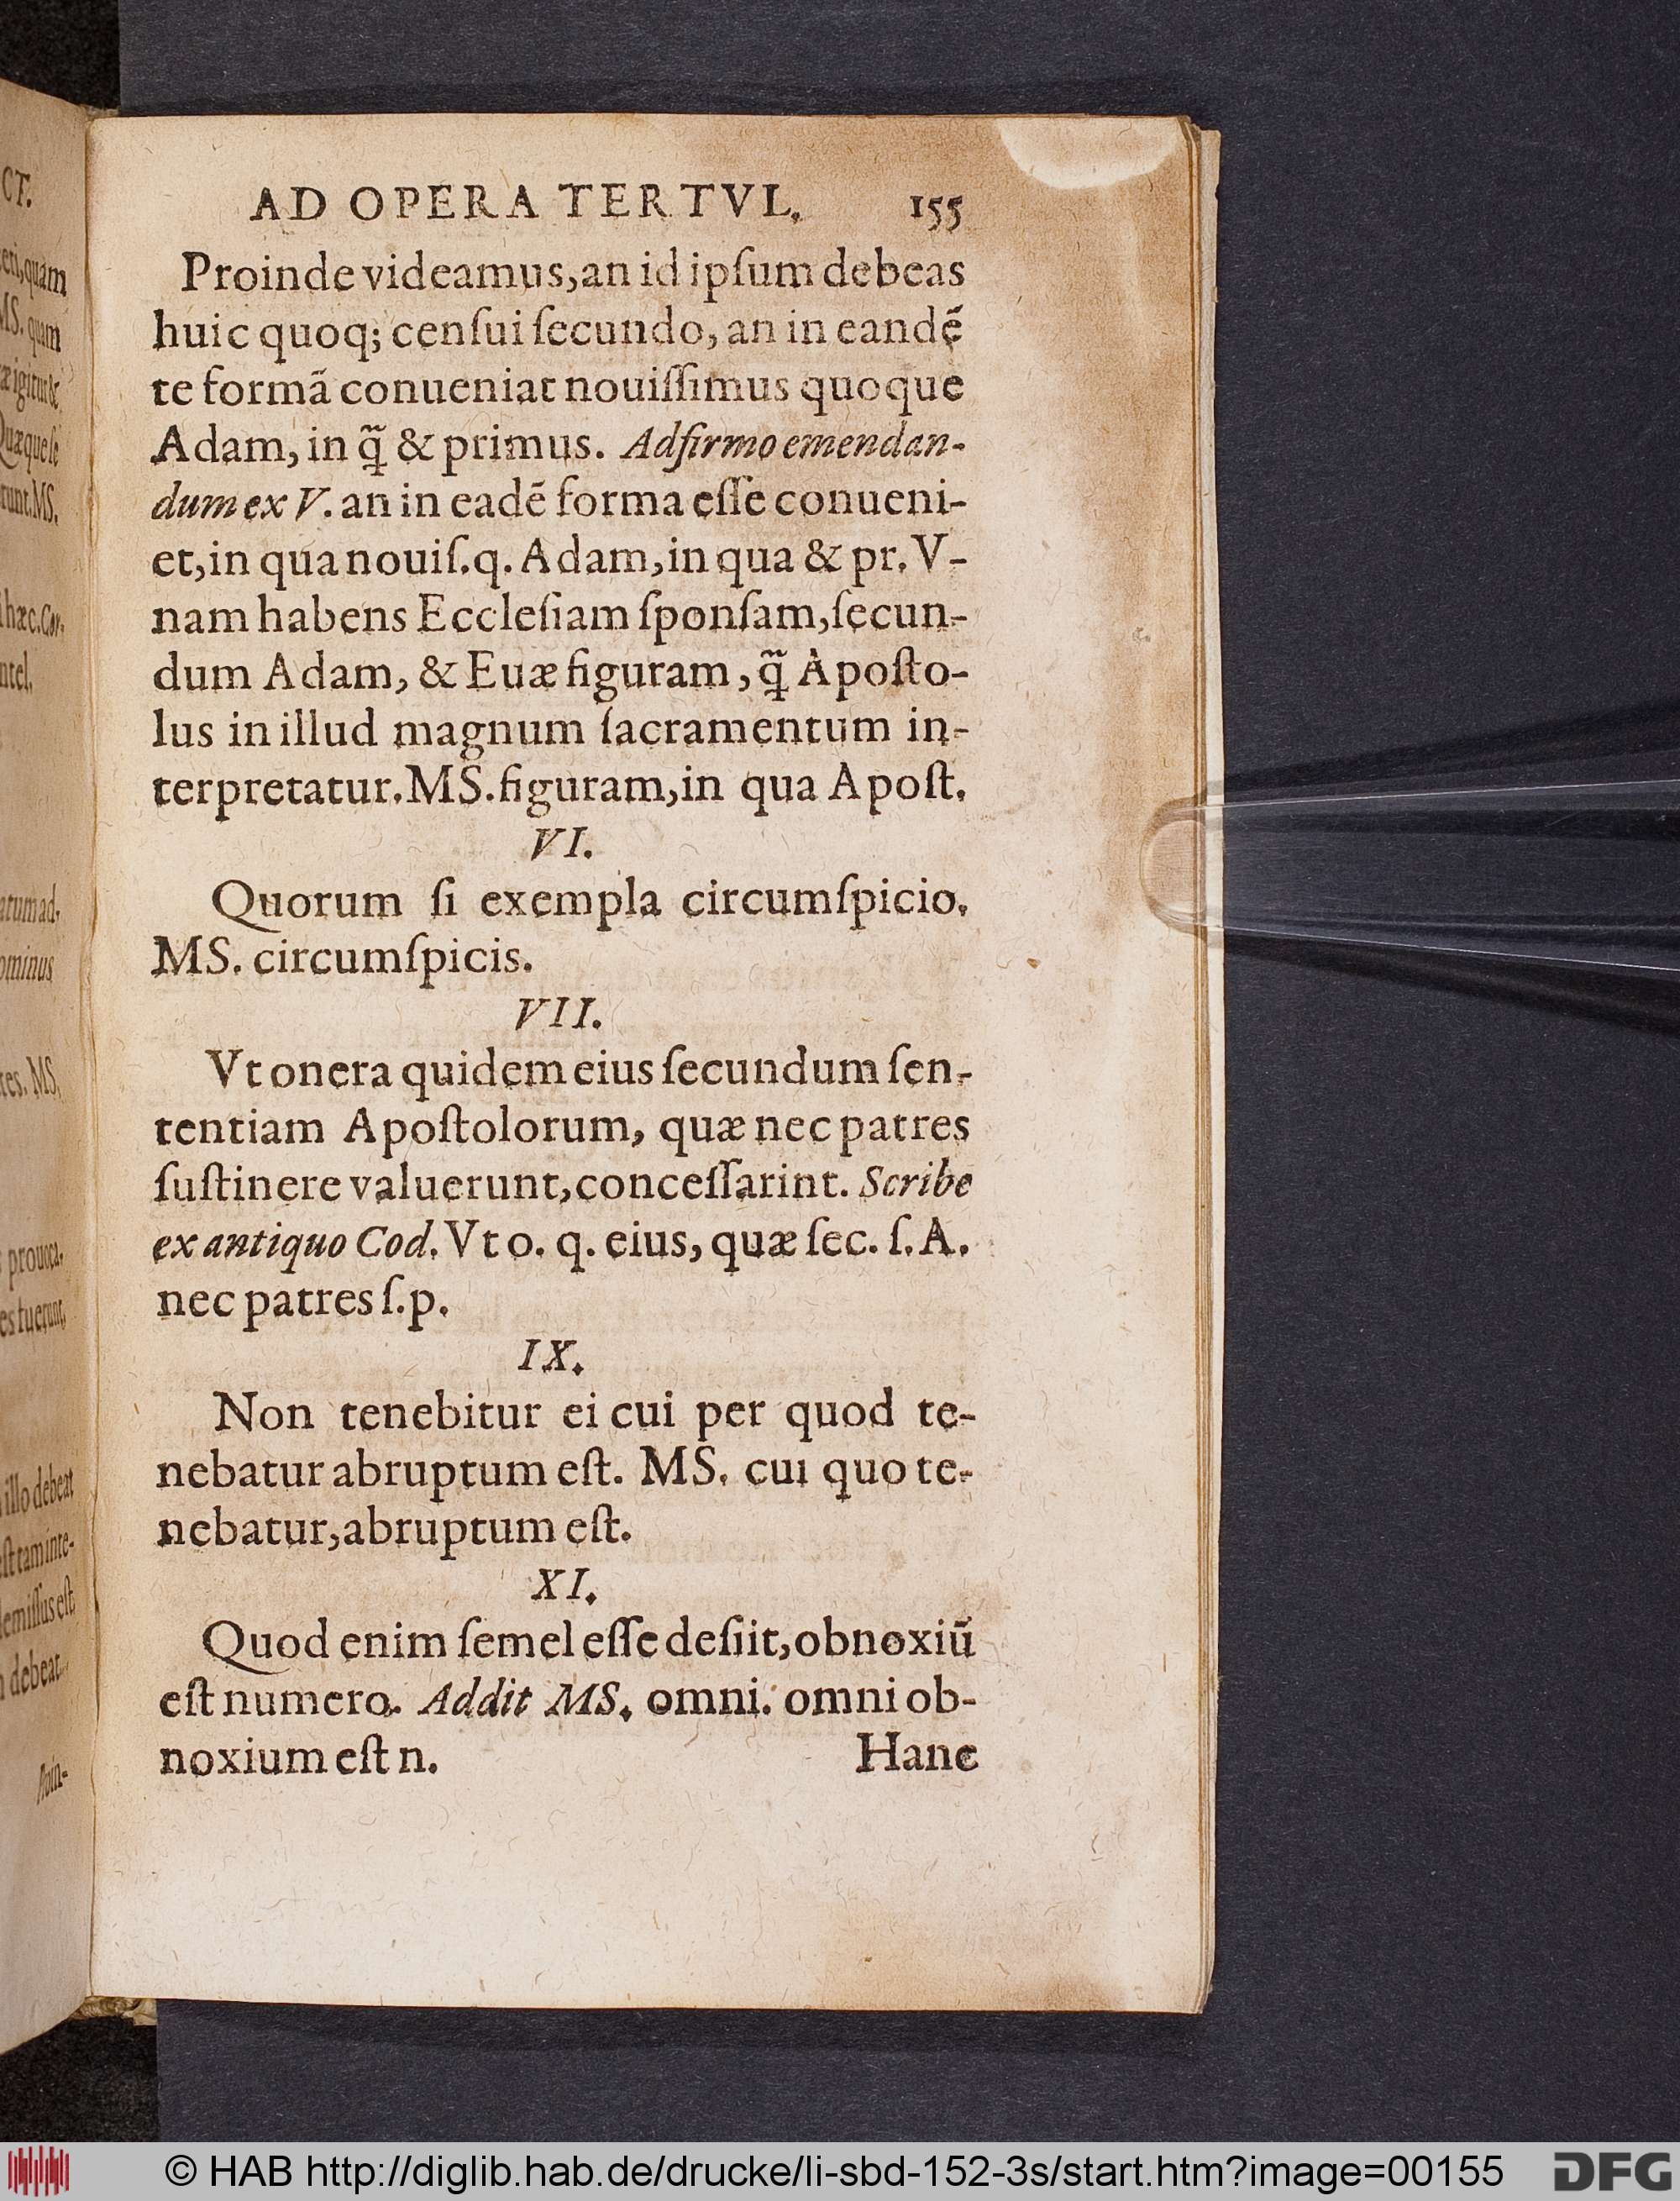 AD OPERA TERTVL. 155
Proinde videamus, an id ipſum debeas
huic quoq; cenſui ſecundo, an in eandẽ
te formã conueniat nouiſſimus quoque
Adam, in q̃ & primus. Adfirmo emendan-
dum ex V. an in eadẽ forma eſſe conueni-
et, in qua nouiſ. q. Adam, in qua & pr. V-
nam habens Eccleſiam ſponſam, ſecun-
dum Adam, & Euæ figuram, q̃ Apoſto-
lus in illud magnum ſacramentum in-
terpretatur. MS. figuram, in qua Apoſt.
VI.
Quorum ſi exempla circumſpicio.
MS. circumſpicis.
VII.
Vt onera quidem eius ſecundum ſen-
tentiam Apoſtolorum, quæ nec patres
ſuſtinere valuerunt, conceſſarint. Scribe
ex antiquo Cod. Vt o. q. eius, quæ ſec. ſ. A.
nec patres ſ. p.
IX.
Non tenebitur ei cui per quod te-
nebatur abruptum eſt. MS. cui quo te-
nebatur, abruptum eſt.
XI.
Quod enim ſemel eſſe deſiit, obnoxiũ
eſt numero. Addit MS. omni. omni ob-
noxium eſt n.
Hanc
CT.
quam
MS. quam
igitur &
Quæque ſe
runt. MS.
hæc. Cor.
ntel.
atum ad.
ominus
res. MS.
prouoca.
es fuerunt,
illo debeat
ſt tam inte-
demiſſus eſt
debeat.
Proin-
© HAB http://diglib.hab.de/drucke/li-sbd-152-3s/start.htm?image=00155
DFG